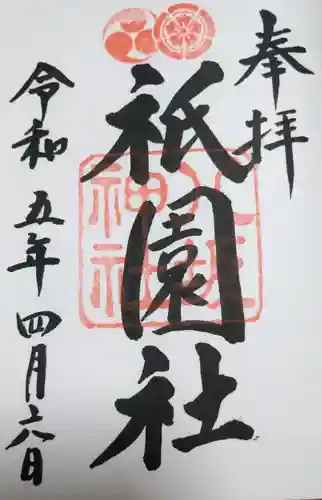 奉拝
祇園社
八坂
神社
令和五年四月六日